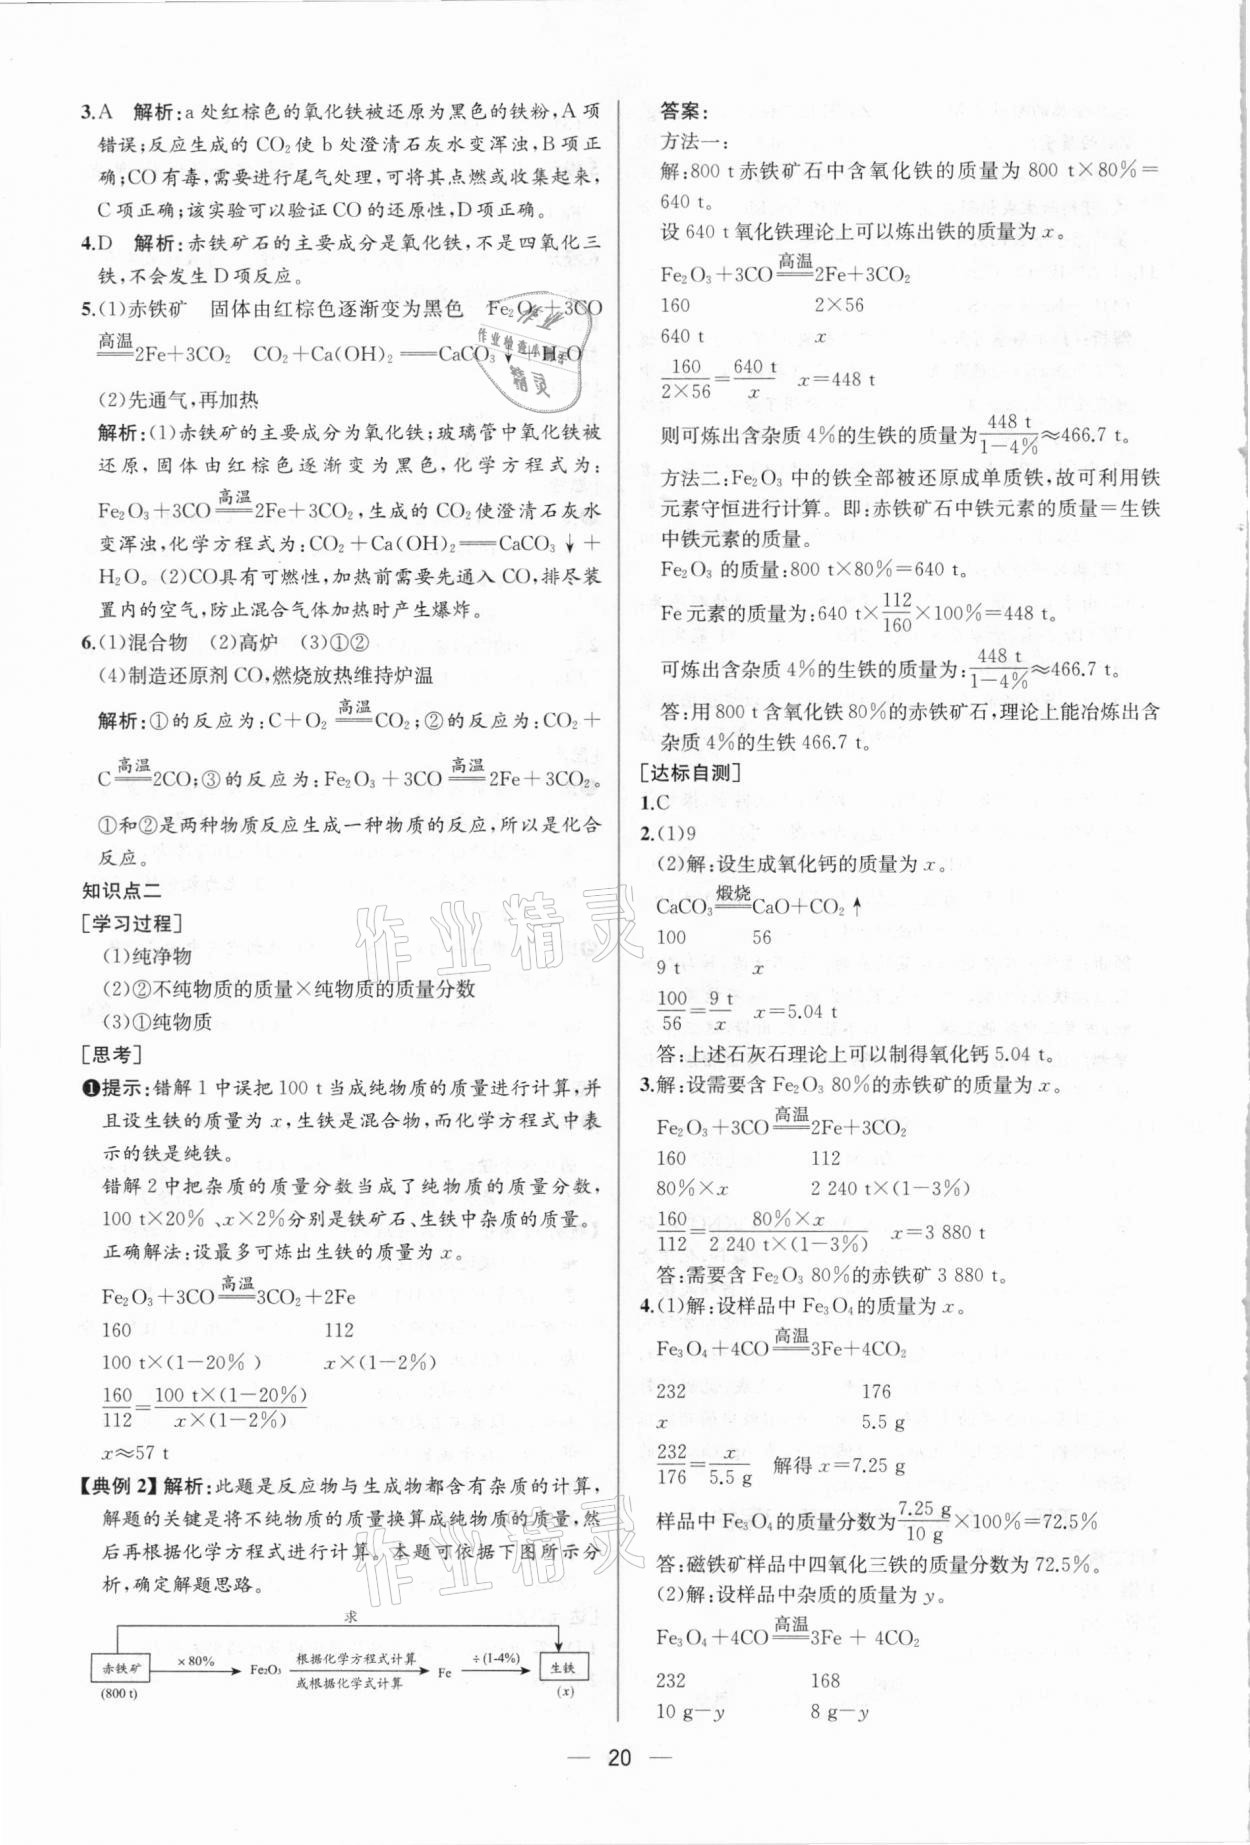 3.A 解析:a处红棕色的氧化铁被还原为黑色的铁粉,A项
错误;反应生成的CO₂使b处澄清石灰水变浑浊,B项正
确;CO有毒,需要进行尾气处理,可将其点燃或收集起来,
C项正确;该实验可以验证CO的还原性,D项正确。
4.D 解析:赤铁矿石的主要成分是氧化铁,不是四氧化三
铁,不会发生D项反应。
5.(1)赤铁矿 固体由红棕色逐渐变为黑色 Fe₂O₃+3CO
高温
══2Fe+3CO₂ CO₂+Ca(OH)₂══CaCO₃↓+H₂O
(2)先通气,再加热
解析:(1)赤铁矿的主要成分为氧化铁;玻璃管中氧化铁被
还原,固体由红棕色逐渐变为黑色,化学方程式为:
高温
Fe₂O₃+3CO══2Fe+3CO₂,生成的CO₂使澄清石灰水
变浑浊,化学方程式为:CO₂+Ca(OH)₂══CaCO₃↓+
H₂O。(2)CO具有可燃性,加热前需要先通入CO,排尽装
置内的空气,防止混合气体加热时产生爆炸。
6.(1)混合物 (2)高炉 (3)①②
(4)制造还原剂CO,燃烧放热维持炉温
高温
解析:①的反应为:C+O₂══CO₂;②的反应为:CO₂+
高温 高温
C══2CO;③的反应为:Fe₂O₃+3CO══2Fe+3CO₂。
①和②是两种物质反应生成一种物质的反应,所以是化合
反应。
知识点二
[学习过程]
(1)纯净物
(2)②不纯物质的质量×纯物质的质量分数
(3)①纯物质
[思考]
❶提示:错解1中误把100 t当成纯物质的质量进行计算,并
且设生铁的质量为x,生铁是混合物,而化学方程式中表
示的铁是纯铁。
错解2中把杂质的质量分数当成了纯物质的质量分数,
100 t×20%、x×2%分别是铁矿石、生铁中杂质的质量。
正确解法:设最多可炼出生铁的质量为x。
高温
Fe₂O₃+3CO══3CO₂+2Fe
160 112
100 t×(1-20%) x×(1-2%)
160/112=100 t×(1-20%)/x×(1-2%)
x≈57 t
【典例2】解析:此题是反应物与生成物都含有杂质的计算,
解题的关键是将不纯物质的质量换算成纯物质的质量,然
后再根据化学方程式进行计算。本题可依据下图所示分
析,确定解题思路。
求
赤铁矿 ×80% Fe₂O₃ 根据化学方程式计算 Fe ÷(1-4%) 生铁
(800 t) 或根据化学式计算 (x)
答案:
方法一:
解:800 t赤铁矿石中含氧化铁的质量为800 t×80%=
640 t。
设640 t氧化铁理论上可以炼出铁的质量为x。
高温
Fe₂O₃+3CO══2Fe+3CO₂
160 2×56
640 t x
160/2×56=640 t/x x=448 t
则可炼出含杂质4%的生铁的质量为448 t/1-4%≈466.7 t。
方法二:Fe₂O₃中的铁全部被还原成单质铁,故可利用铁
元素守恒进行计算。即:赤铁矿石中铁元素的质量=生铁
中铁元素的质量。
Fe₂O₃的质量:800 t×80%=640 t。
Fe元素的质量为:640 t×112/160×100%=448 t。
可炼出含杂质4%的生铁的质量为:448 t/1-4%≈466.7 t。
答:用800 t含氧化铁80%的赤铁矿石,理论上能冶炼出含
杂质4%的生铁466.7 t。
[达标自测]
1.C
2.(1)9
(2)解:设生成氧化钙的质量为x。
煅烧
CaCO₃══CaO+CO₂↑
100 56
9 t x
100/56=9 t/x x=5.04 t
答:上述石灰石理论上可以制得氧化钙5.04 t。
3.解:设需要含Fe₂O₃ 80%的赤铁矿的质量为x。
高温
Fe₂O₃+3CO══2Fe+3CO₂
160 112
80%×x 2 240 t×(1-3%)
160/112=80%×x/2 240 t×(1-3%) x=3 880 t
答:需要含Fe₂O₃ 80%的赤铁矿3 880 t。
4.(1)解:设样品中Fe₃O₄的质量为x。
高温
Fe₃O₄+4CO══3Fe+4CO₂
232 176
x 5.5 g
232/176=x/5.5 g 解得x=7.25 g
样品中Fe₃O₄的质量分数为7.25 g/10 g×100%=72.5%
答:磁铁矿样品中四氧化三铁的质量分数为72.5%。
(2)解:设样品中杂质的质量为y。
高温
Fe₃O₄+4CO══3Fe+4CO₂
232 168
10 g-y 8 g-y
— 20 —
作业精灵
作业精灵
作业
作业检查小助手
精灵